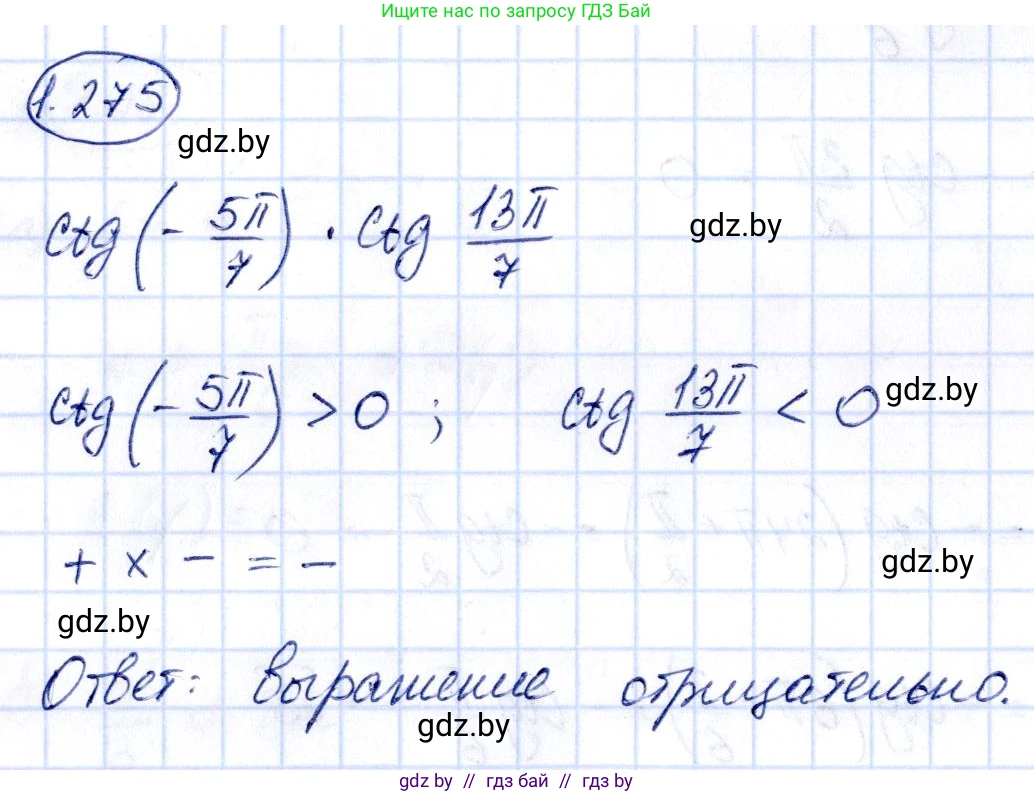 Ищите нас по запросу ГДЗ Бай
1.275
gdz.by
ctg(-5π/7) · ctg 13π/7
gdz.by
ctg(-5π/7) > 0 ; ctg 13π/7 < 0
gdz.by
+ × - = -
gdz.by
gdz.by
Ответ: выражение отрицательно.
gdz.by
gdz by // гдз бай // гдз by